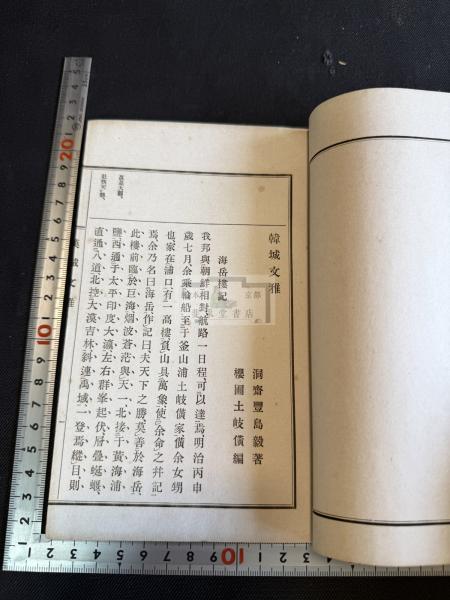 韓城文雅
洞齋豐島毅著
櫻圃土岐僙編
海岳樓記
我邦與朝鮮相對、航路一日程、可以達焉、明治丙申
歲七月、余乘輪船至于釜山浦土岐僙家、僙余女甥
也、家在浦口、有一高樓、負山具萬象、使余命之幷記
焉、余乃名曰海岳、作記曰、夫天下之勝、莫善於海岳、
此樓前臨於巨海、烟波蒼茫、與天一、北接于黃海浦
鹽、西通于太平印度大瀛、左右群峯起伏、層疊蜒蜿、
直通八道、北控大漠吉林、斜連禹域、一登焉、縱目則
眞是大觀、
漢城文雅
京都
書店